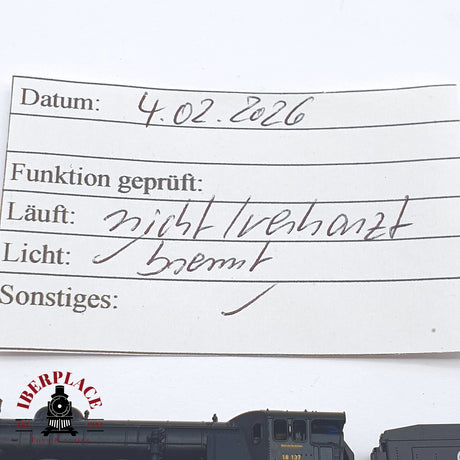 Datum: 4.02.2026
Funktion geprüft:
Läuft: nicht/verharzt
Licht: brennt
Sonstiges: /
IBERPLACE
18 137